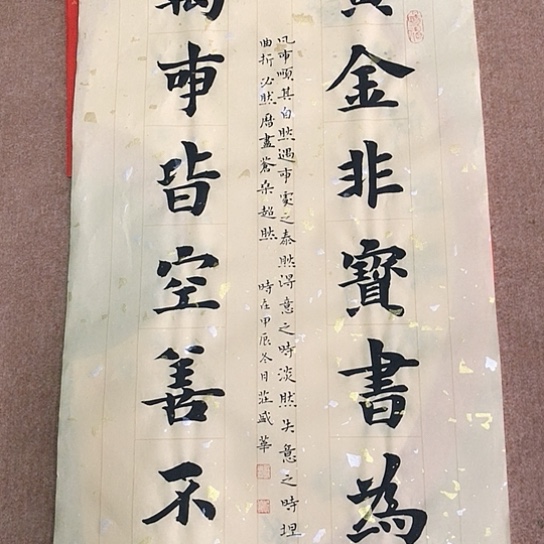 黃金非寶書為
凡事順其自然遇事處之泰然得意之時淡然失意之時坦
曲折必然歷盡蒼桑超然 時在甲辰冬月莊盛華
萬事皆空善不